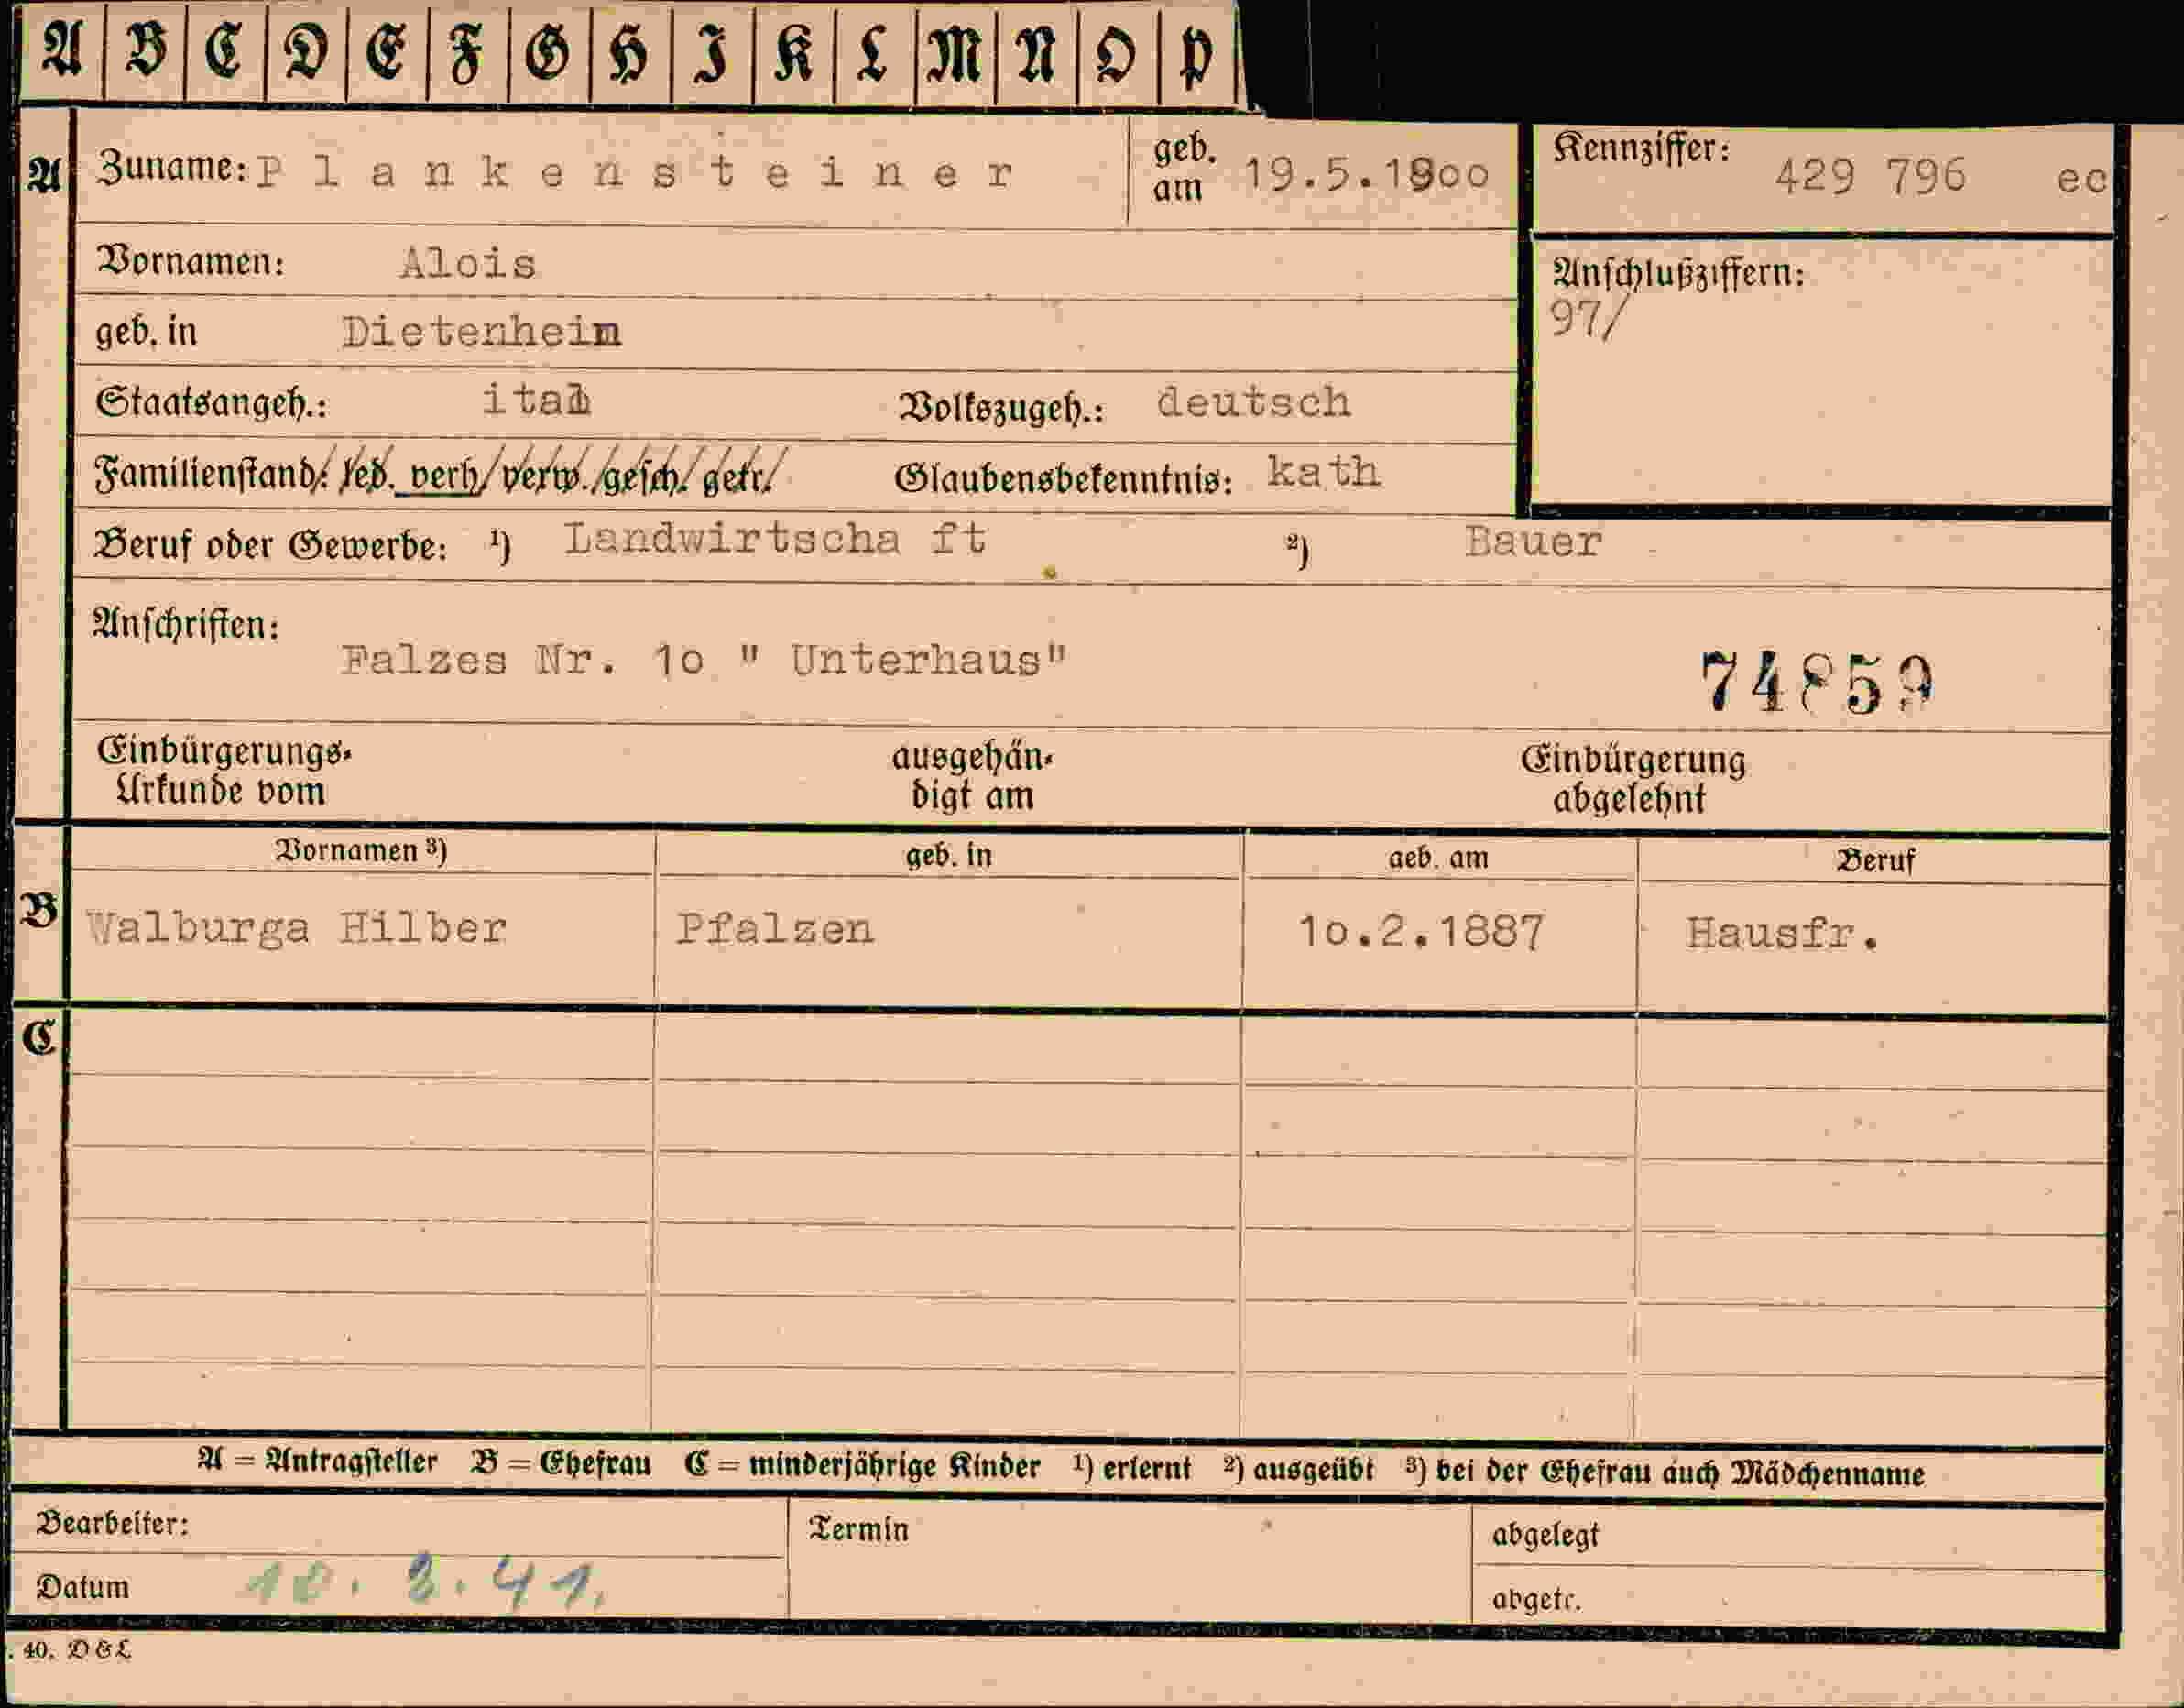 A B C D E F G H I K L M N O P
A Zuname: Plankensteiner geb. am 19.5.1900 Kennziffer: 429 796 ec
Vornamen: Alois
Anschlußziffern:
97/
geb. in Dietenheim
Staatsangeh.: ital Volkszugeh.: deutsch
Familienstand: led. verh. verw. gesch. getr. Glaubensbekenntnis: kath
Beruf oder Gewerbe: 1) Landwirtscha ft 2) Bauer
Anschriften:
Falzes Nr. 10 " Unterhaus"
74859
Einbürgerungs-
Urkunde vom
ausgehän-
digt am
Einbürgerung
abgelehnt
Vornamen 3) geb. in geb. am Beruf
B Walburga Hilber Pfalzen 10.2.1887 Hausfr.
C
A = Antragsteller B = Ehefrau C = minderjährige Kinder 1) erlernt 2) ausgeübt 3) bei der Ehefrau auch Mädchenname
Bearbeiter: Termin abgelegt
Datum 10. 3. 41. abgetr.
. 40. D&L